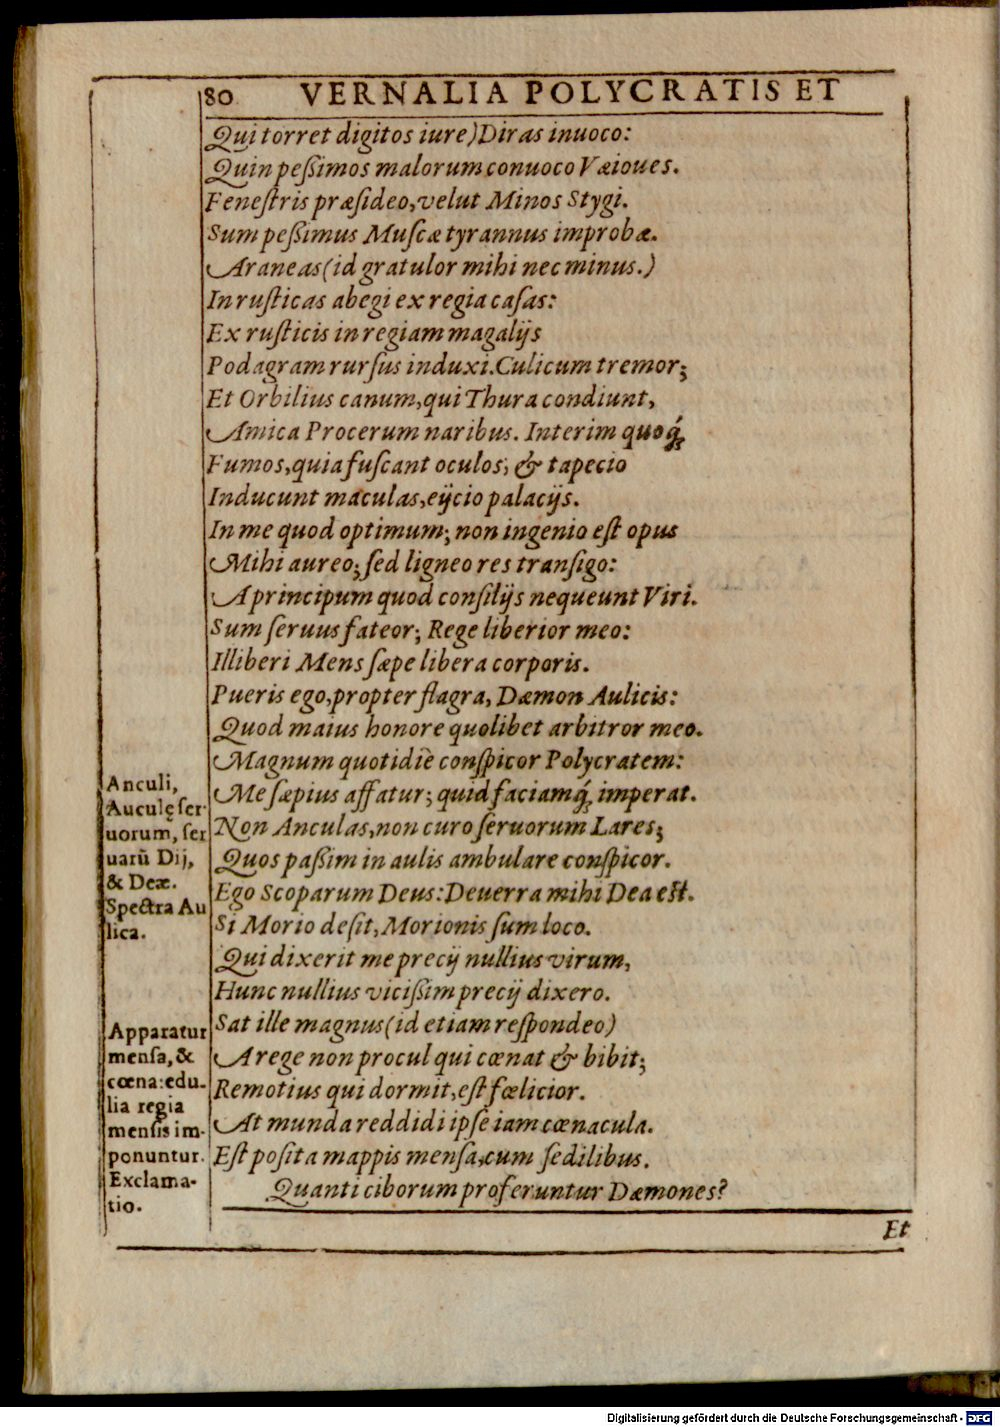 80 VERNALIA POLYCRATIS ET
Qui torret digitos iure) Diras inuoco:
Quin peßimos malorum conuoco Væioues.
Feneſtris præſideo, velut Minos Stygi.
Sum peßimus Muſcæ tyrannus improbæ.
Araneas (id gratulor mihi nec minus.)
In ruſticas abegi ex regia caſas:
Ex ruſticis in regiam magalijs
Podagram rurſus induxi. Culicum tremor;
Et Orbilius canum, qui Thura condiunt,
Amica Procerum naribus. Interim quoq́;
Fumos, quia fuſcant oculos, & tapecio
Inducunt maculas, eijcio palacijs.
In me quod optimum; non ingenio eſt opus
Mihi aureo; ſed ligneo res tranſigo:
A principum quod conſilijs nequeunt Viri.
Sum ſeruus fateor; Rege liberior meo:
Illiberi Mens ſæpe libera corporis.
Pueris ego, propter flagra, Dæmon Aulicis:
Quod maius honore quolibet arbitror meo.
Magnum quotidiè conſpicor Polycratem:
Me ſæpius affatur; quid faciamq́; imperat.
Non Anculas, non curo ſeruorum Lares;
Quos paßim in aulis ambulare conſpicor.
Ego Scoparum Deus: Deuerra mihi Dea eſt.
Si Morio deſit, Morionis ſum loco.
Qui dixerit me precij nullius virum,
Hunc nullius vicißim precij dixero.
Sat ille magnus (id etiam reſpondeo)
A rege non procul qui cœnat & bibit;
Remotius qui dormit, eſt fœlicior.
At munda reddidi ipſe iam cœnacula.
Eſt poſita mappis menſa, cum ſedilibus.
Quanti ciborum proferuntur Dæmones?
Anculi,
Auculę ſer-
uorum, ſer
uarũ Dij,
& Deæ.
Spectra Au
lica.
Apparatur
menſa, &
cœna: edu-
lia regia
menſis im-
ponuntur.
Exclama-
tio.
Et
Digitalisierung gefördert durch die Deutsche Forschungsgemeinschaft - DFG